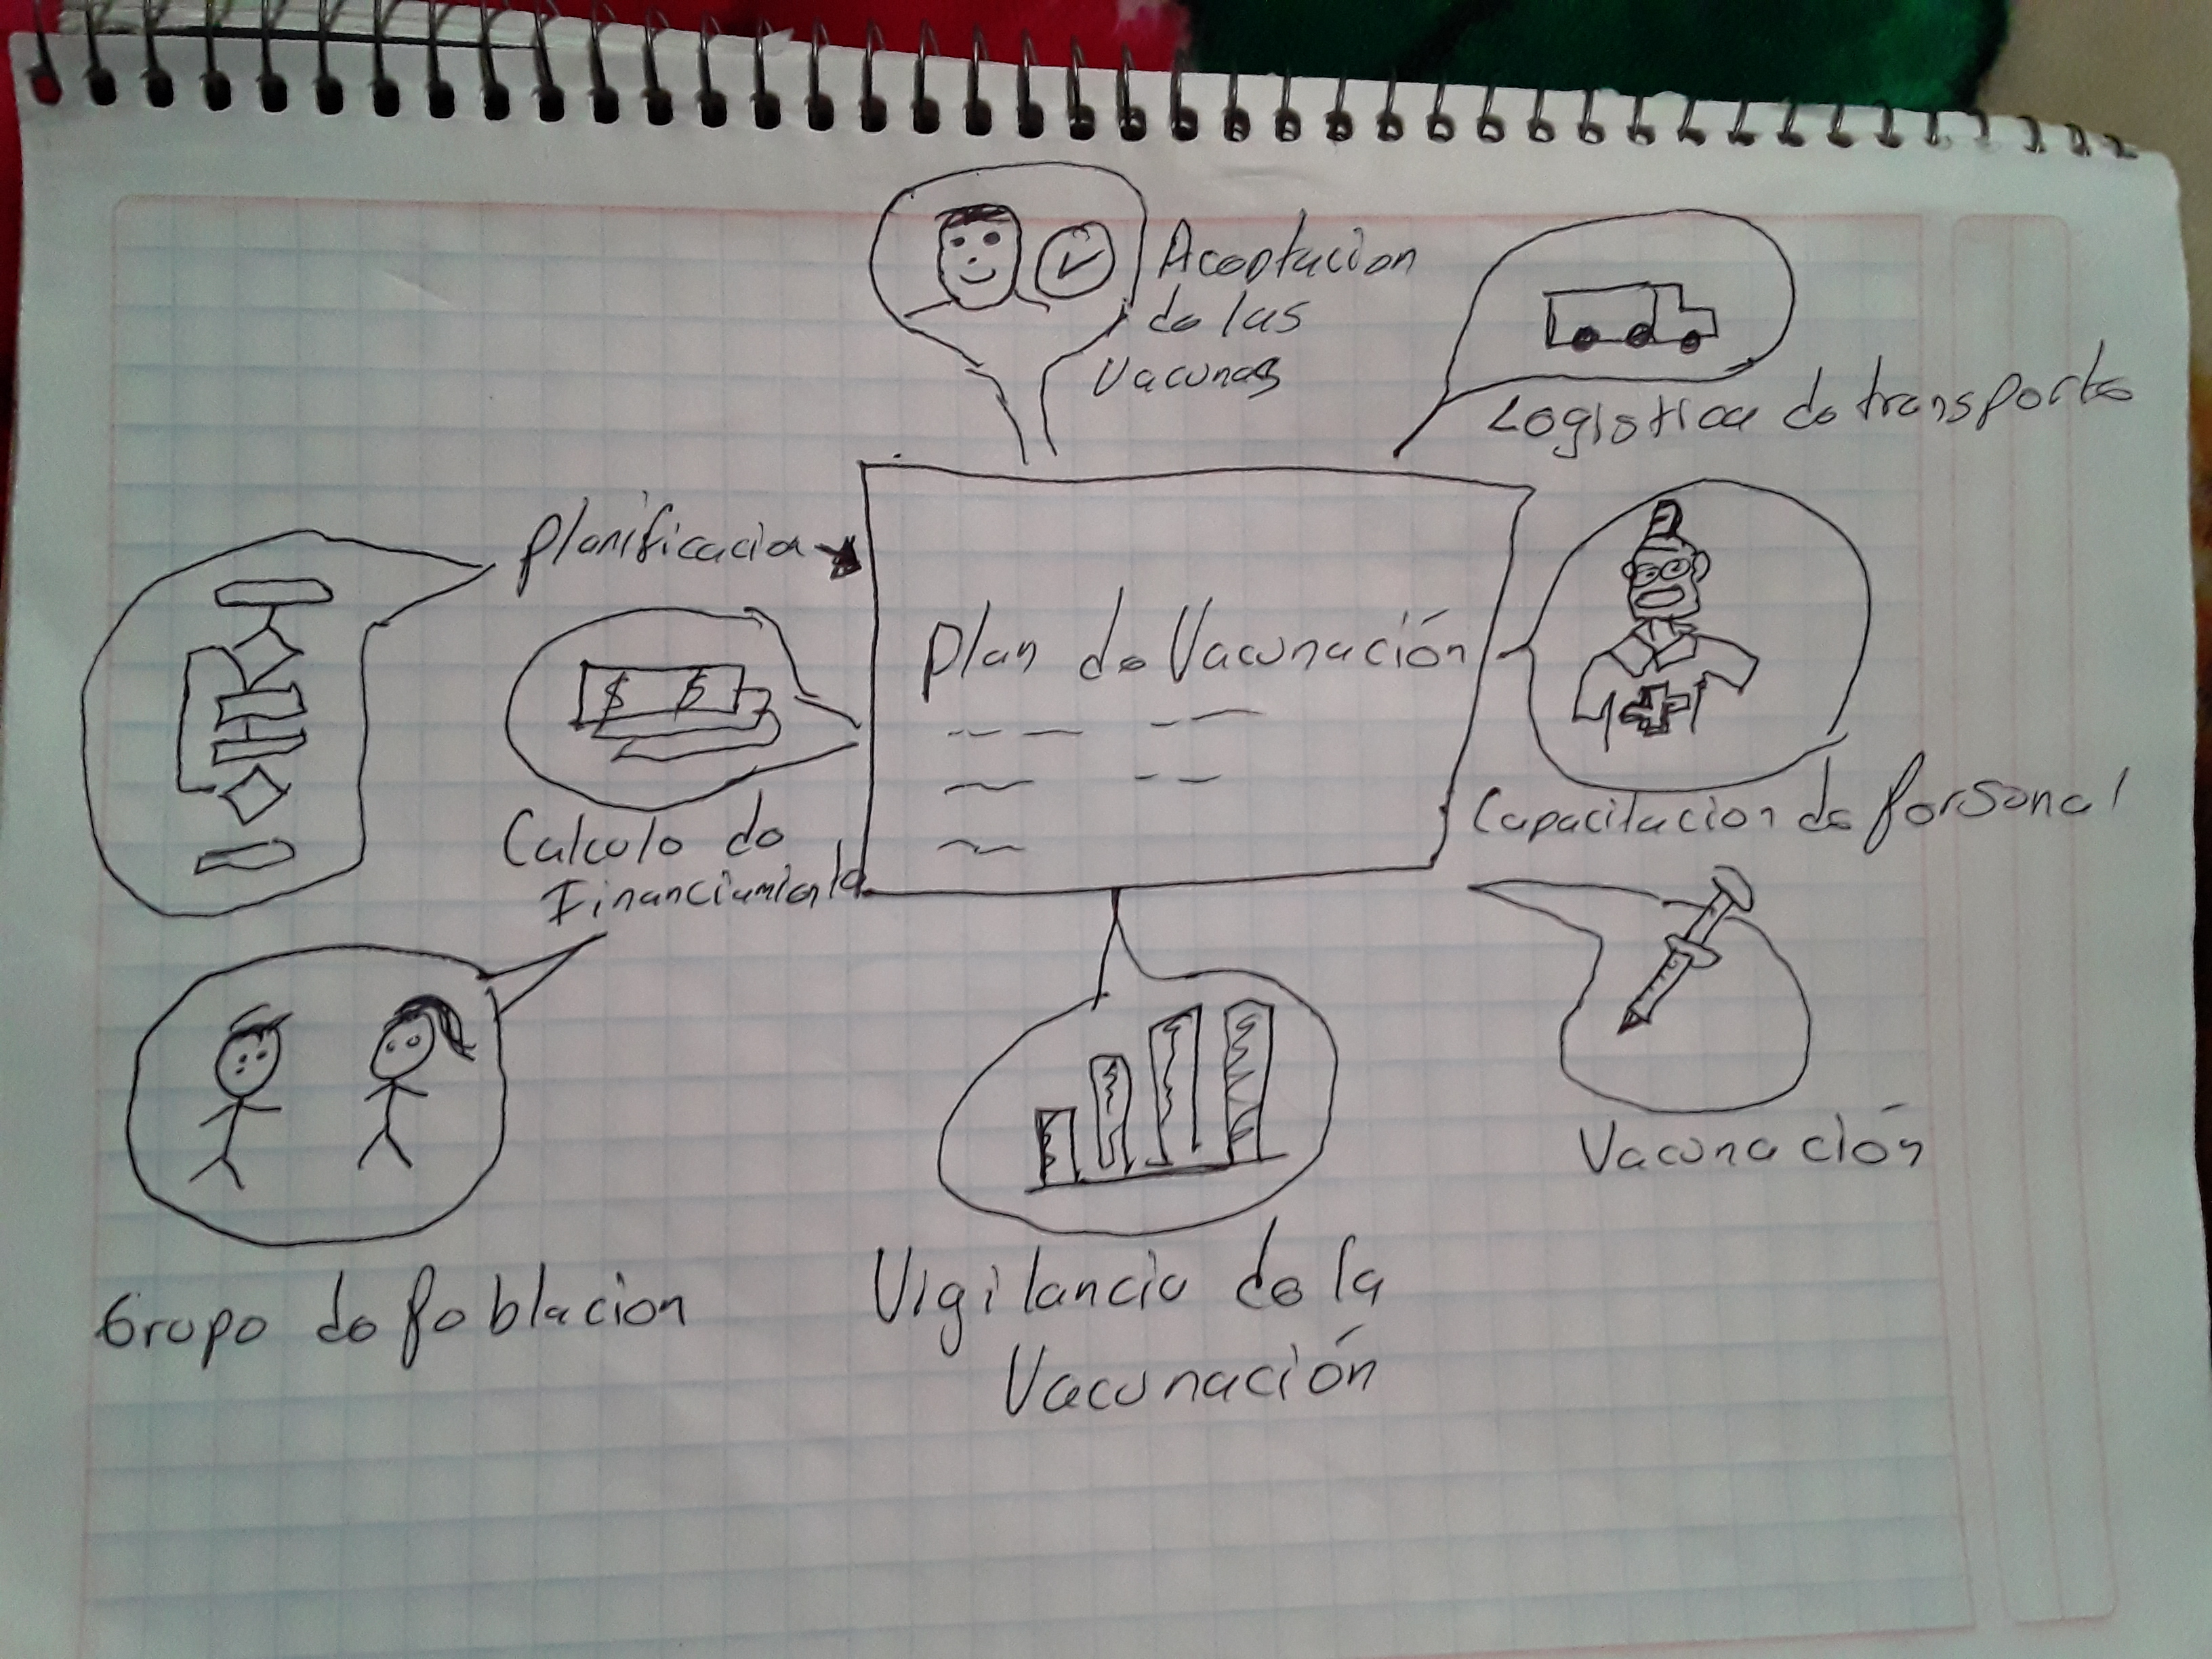 Aceptacion
de las
Vacunas
Logistica de transporte
Planificacion
Plan de Vacunación
$ $
Calculo de
Financiamiento
Capacitacion de Personal
Vacunación
Grupo de Poblacion
Vigilancia de la
Vacunación